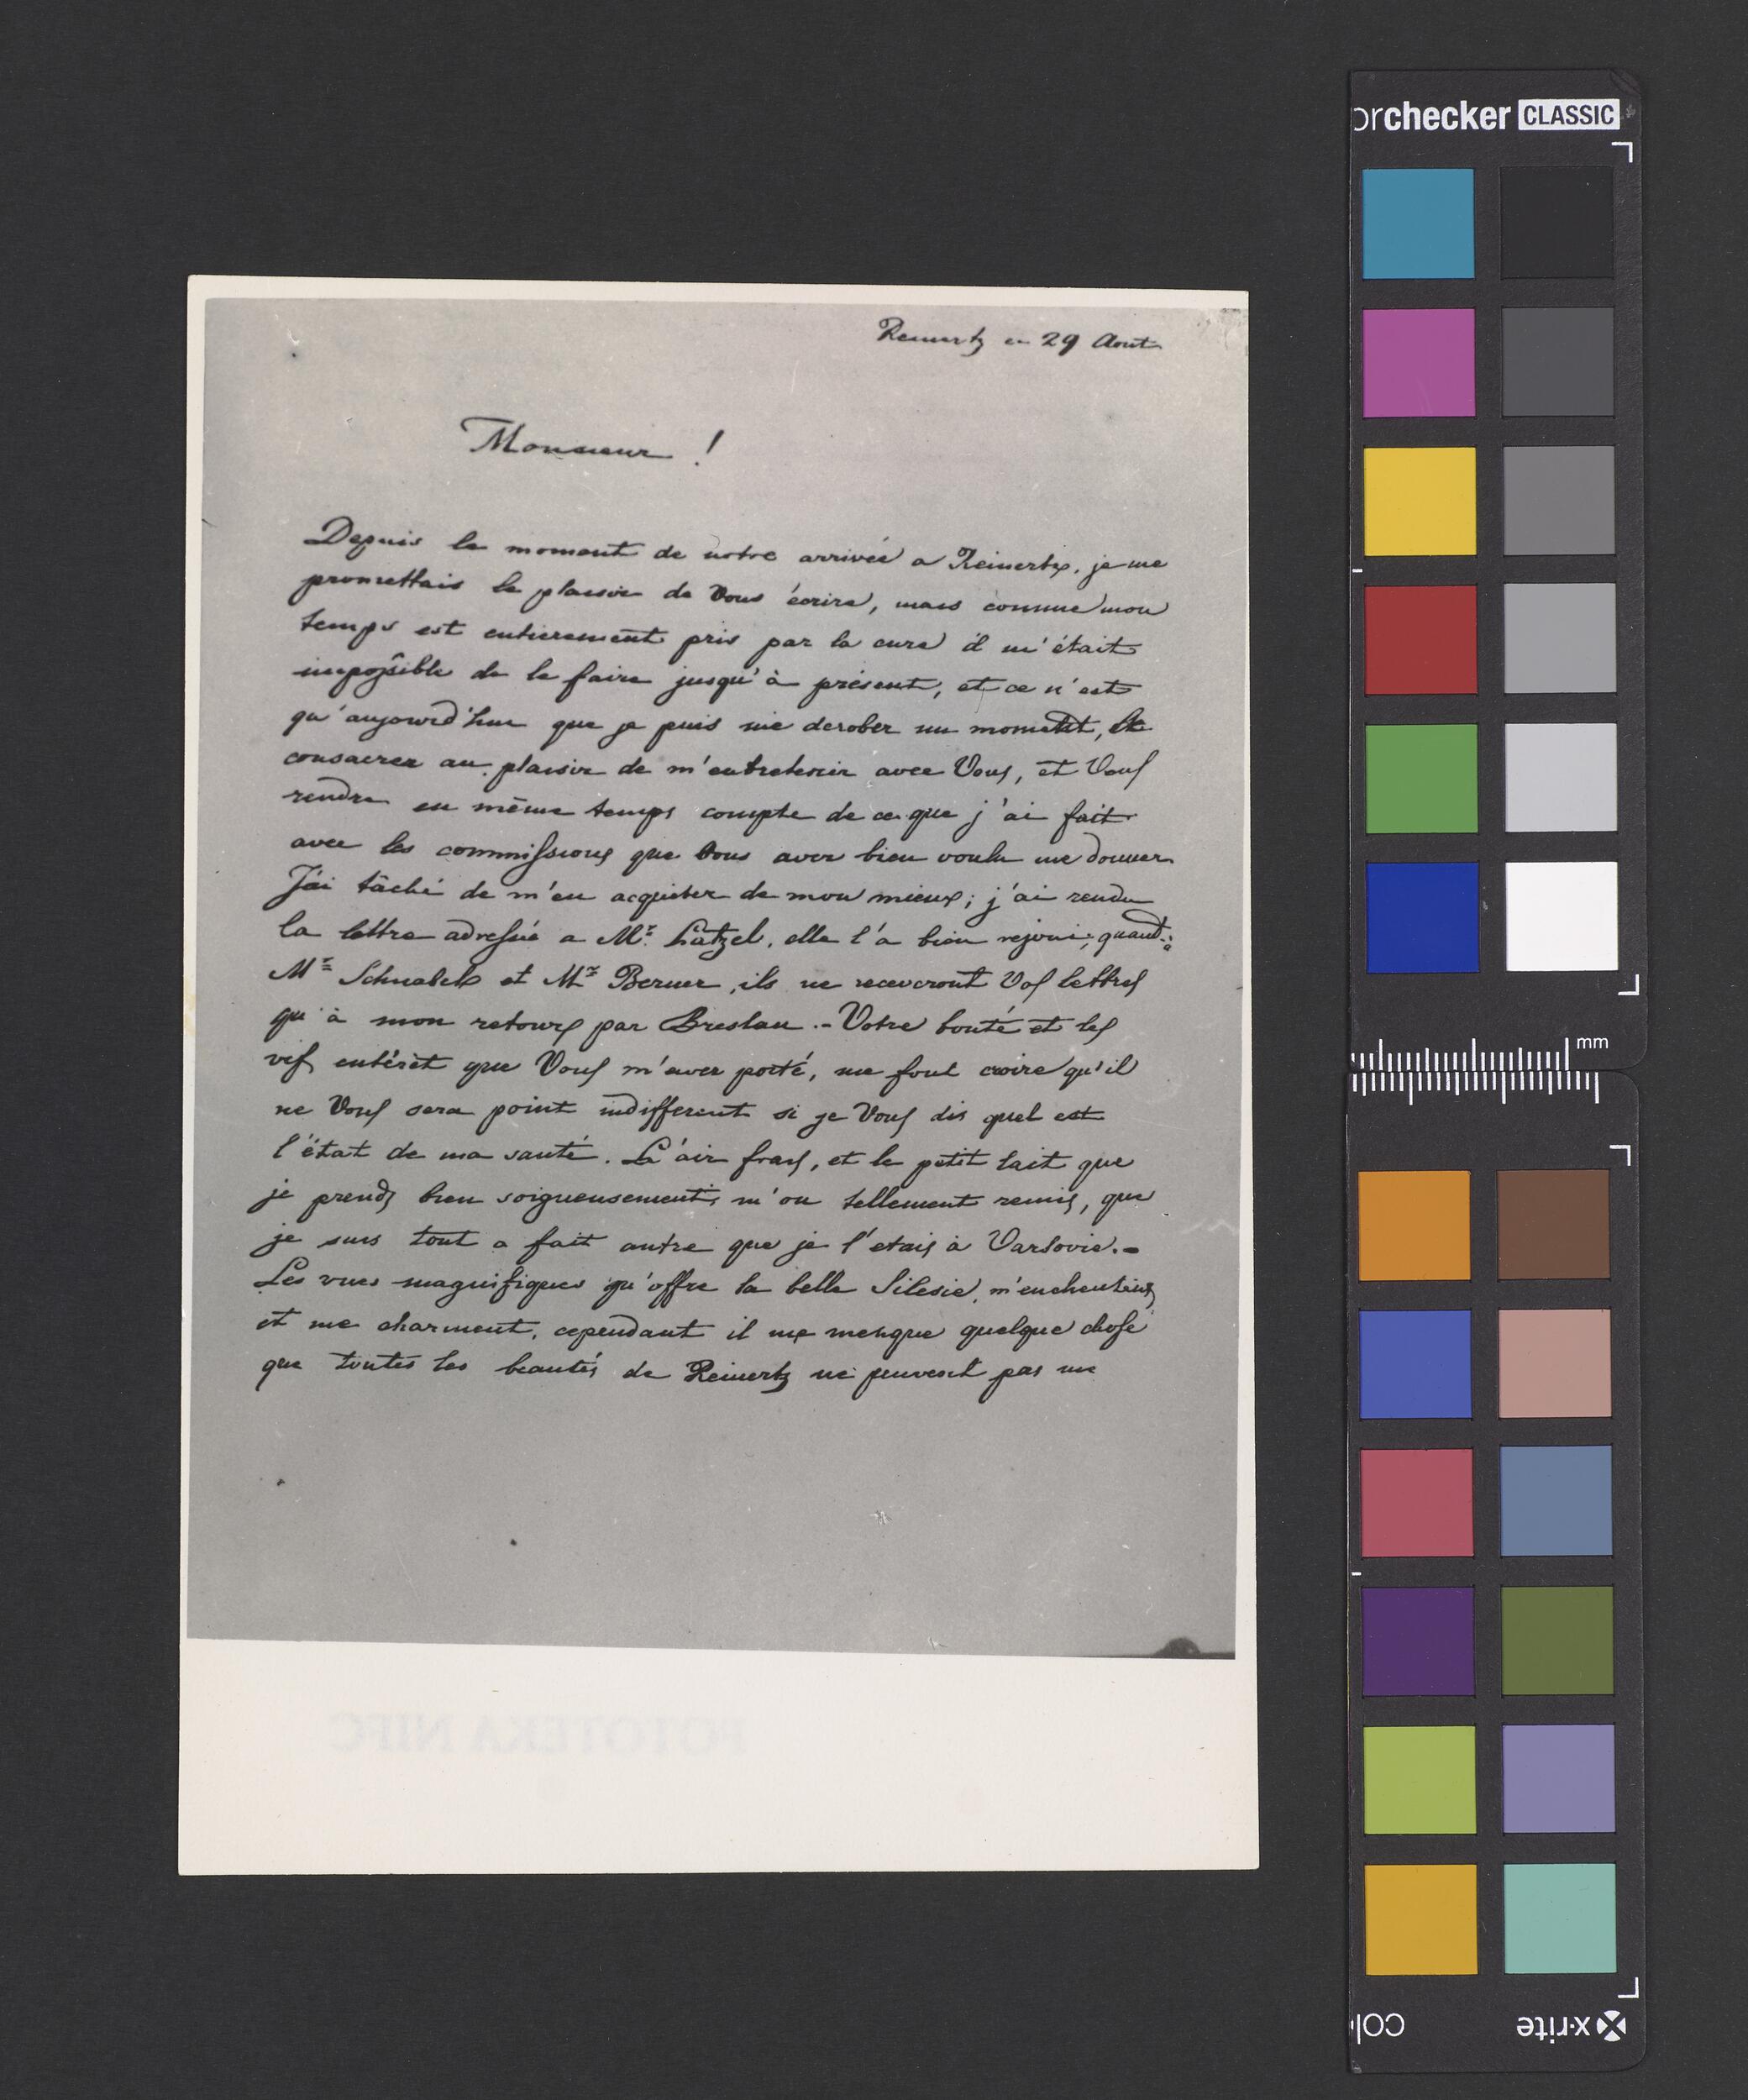 Reinertz ce 29 Aout
Monsieur !
Depuis le moment de notre arrivée a Reinertz, je me
promettais le plaisir de Vous écrire, mais comme mon
temps est entierement pris par la cure il m'était
impossible de le faire jusqu'à présent, et ce n'est
qu'aujourd'hui que je puis me derober un moment, et
consacrer au plaisir de m'entretenir avec Vous, et Vous
rendre en même temps compte de ce que j'ai fait
avec les commissions que Vous avez bien voulu me donner
J'ai tâché de m'en acquieter de mon mieux; j'ai rendu
la lettre adressée a Mr. Latzel, elle l'a bien rejoui; quand à
Mr Schnabel et Mr Berner, ils ne recevront Vos lettres
qu'à mon retour par Breslau .- Votre bonté et les
vif intérèt que Vous m'avez porté, me font croire qu'il
ne Vous sera point indifferent si je Vous dis quel est
l'état de ma santé. L'air frais, et le petit lait que
je prends bien soigneusement, m'on tellement remis, que
je suis tout a fait autre que je l'etais à Varsovie.-
Les vues magnifiques qu'offre la belle Silesie, m'enchentent
et me charment, cependant il me menque quelque chose
que toutes les beautés de Reinertz ne peuvent pas me
FOTOTEKA NIFC
orchecker CLASSIC
mm
x-rite
col